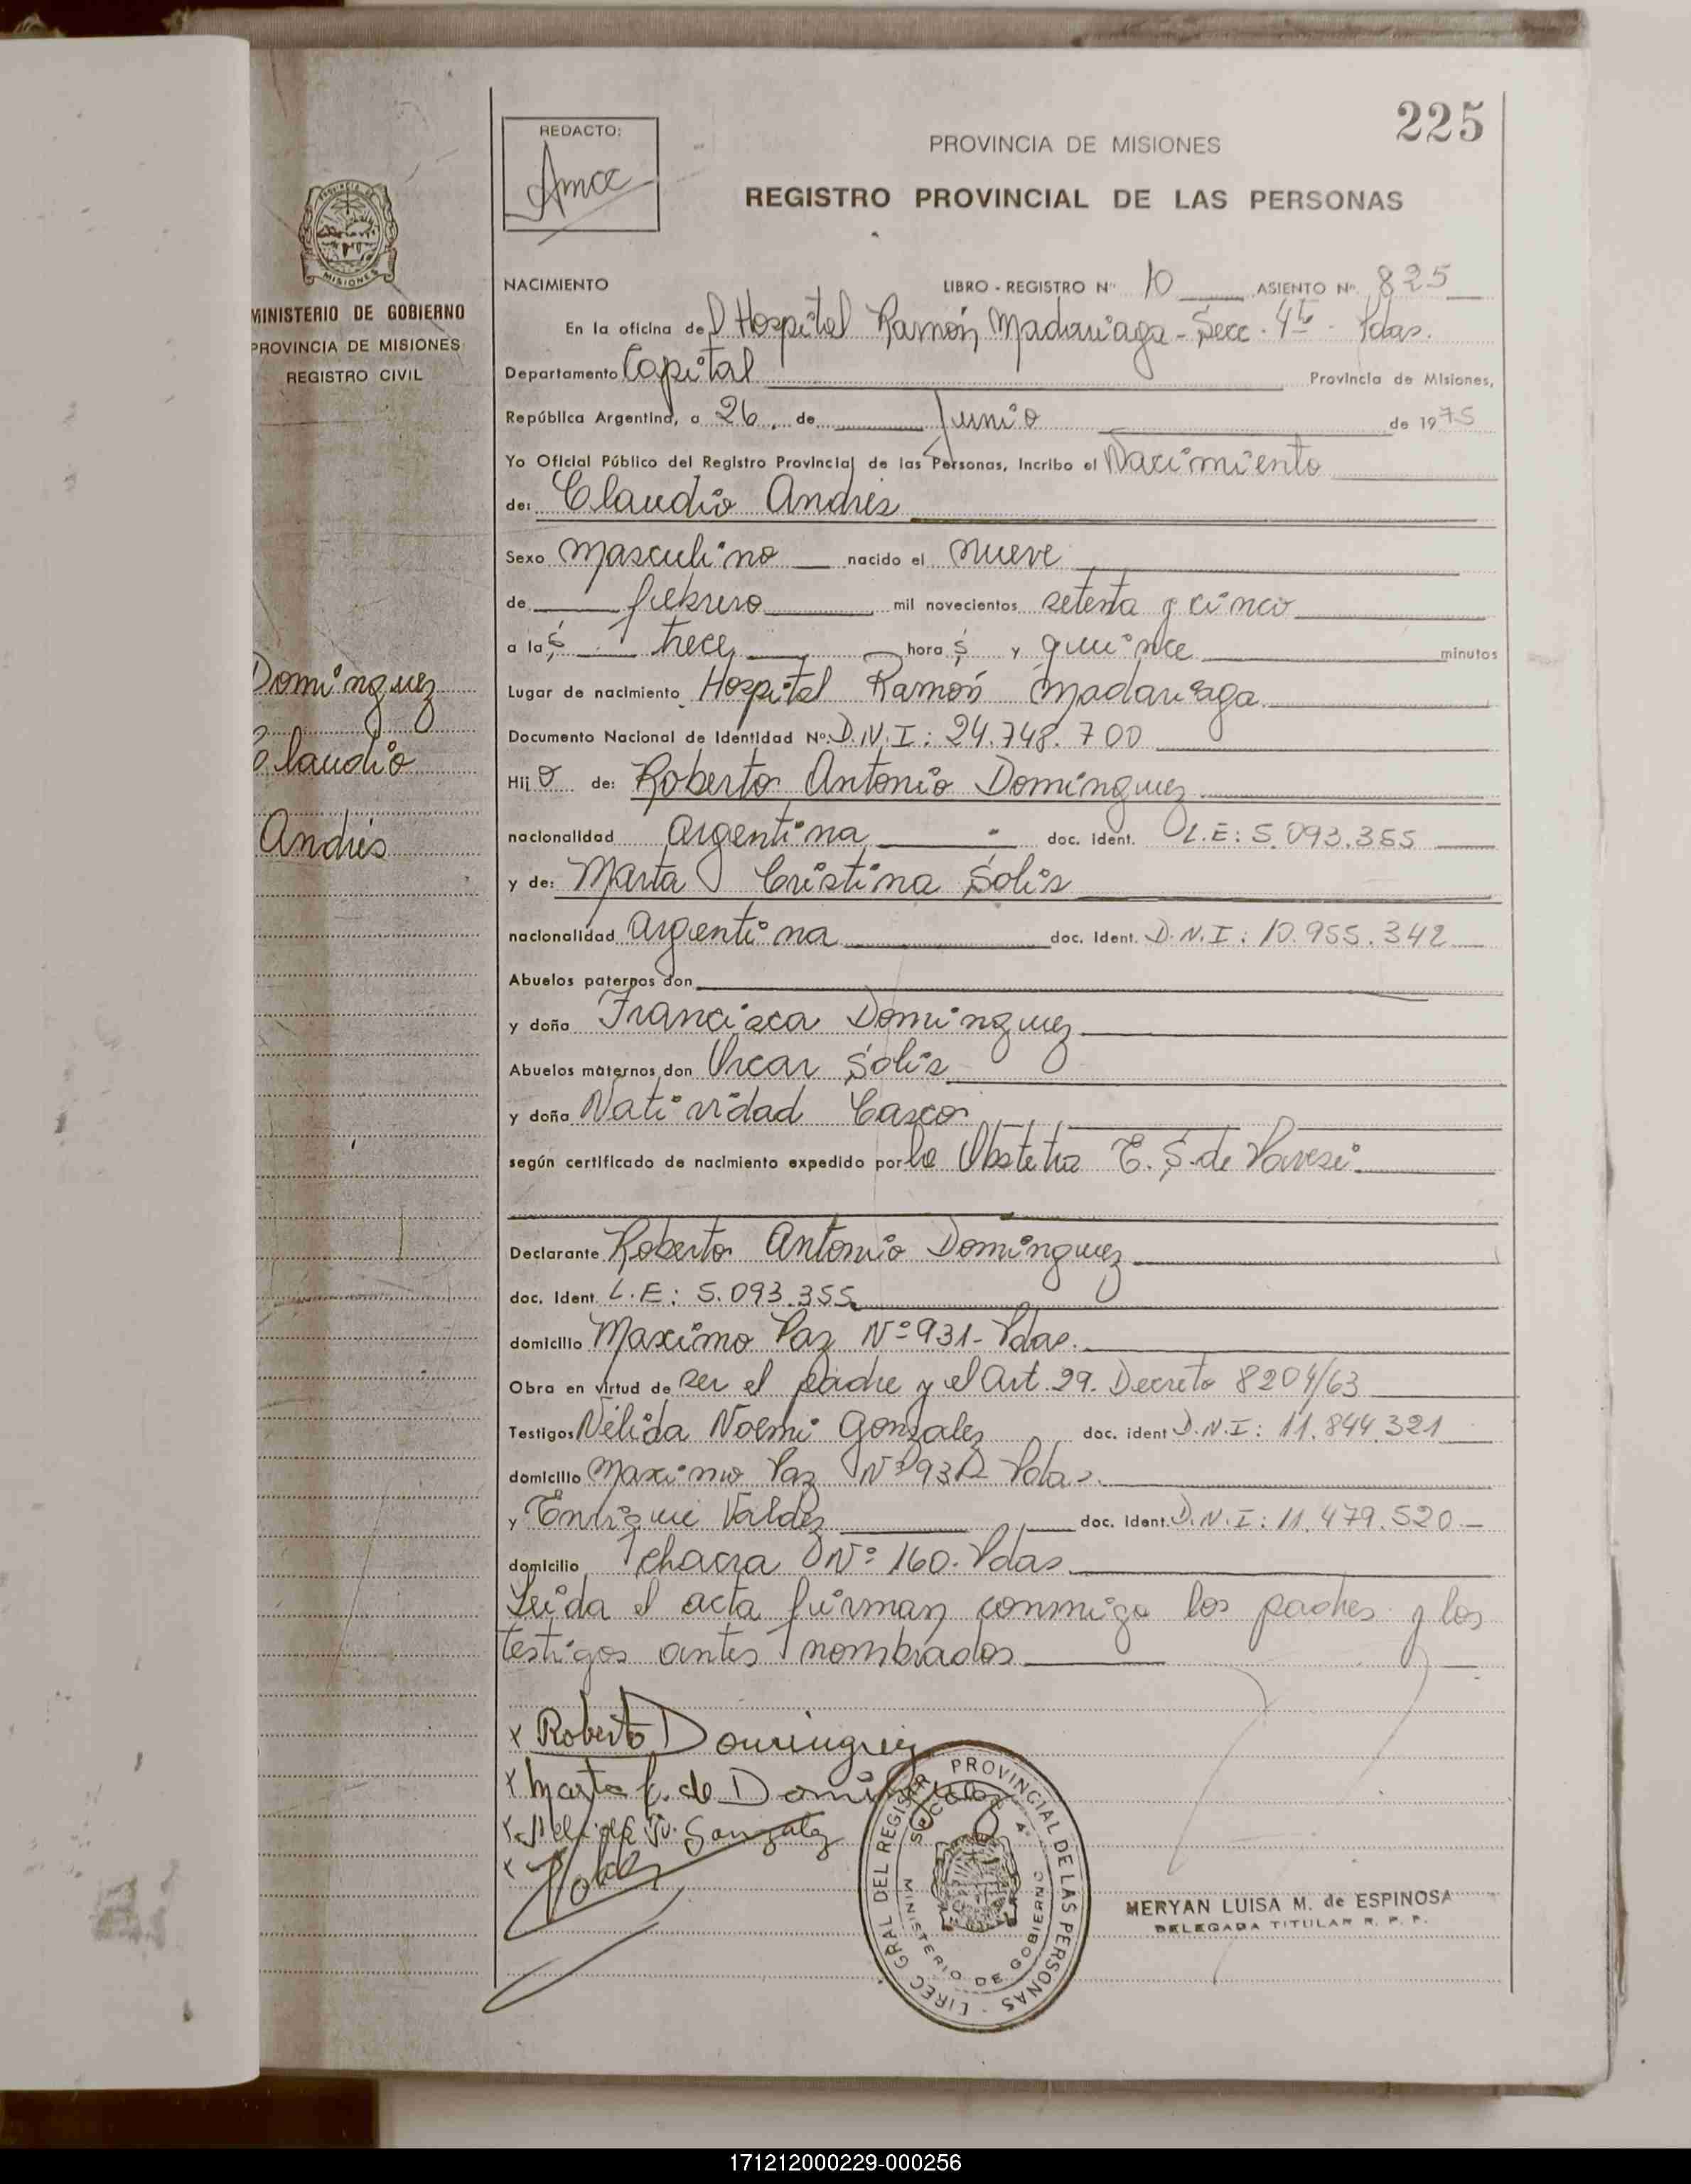 225
REDACTO:
PROVINCIA DE MISIONES
REGISTRO PROVINCIAL DE LAS PERSONAS
MISIONES
MINISTERIO DE GOBIERNO
PROVINCIA DE MISIONES
REGISTRO CIVIL
Dominguez
Claudio
Andrés
NACIMIENTO LIBRO - REGISTRO Nº 10 ASIENTO Nº 825
En la oficina del Hospital Ramón Madariaga - Secc. 4ta. Pdas.
Departamento Capital Provincia de Misiones,
República Argentina, a 26 de Junio de 1975
Yo Oficial Público del Registro Provincial de las Personas, Incribo el Nacimiento
de: Claudio Andrés
Sexo masculino nacido el nueve
de febrero mil novecientos setenta y cinco
a las trece horas y quince minutos
Lugar de nacimiento Hospital Ramón Madariaga
Documento Nacional de Identidad Nº: D.N.I: 24.748.700
Hijo de: Roberto Antonio Dominguez
nacionalidad argentina doc. ident. L.E: 5.093.355
y de: Marta Cristina Solis
nacionalidad argentina doc. Ident. D.N.I: 10.955.342
Abuelos paternos don
y doña Francisca Dominguez
Abuelos maternos don Oscar Solis
y doña Natividad Casco
según certificado de nacimiento expedido por la Obstetra E. S. de Pavesi
Declarante Roberto Antonio Dominguez
doc. Ident. L.E: 5.093.355
domicilio Maximo Paz Nº 931 - Pdas.
Obra en virtud de ser el padre y el Art. 29. Decreto 8204/63
Testigos Nélida Noemi Gonzalez doc. ident D.N.I: 11.844.321
domicilio Maximo Paz Nº 931 - Pdas.
y Enrique Valdez doc. Ident. D.N.I: 11.479.520 -
domicilio chacra Nº 160. Pdas.
Leida el acta firman conmigo los padres y los
testigos antes nombrados
x Roberto Dominguez
x Marta C. de Dominguez
x Nelida N. Gonzalez
x Valdez
DIREC GRAL DEL REGISTR PROVINCIAL DE LAS PERSONAS
SECCION 4ª
MINISTERIO DE GOBIERNO
MERYAN LUISA M. de ESPINOSA
DELEGADA TITULAR R. P. P.
171212000229-000256